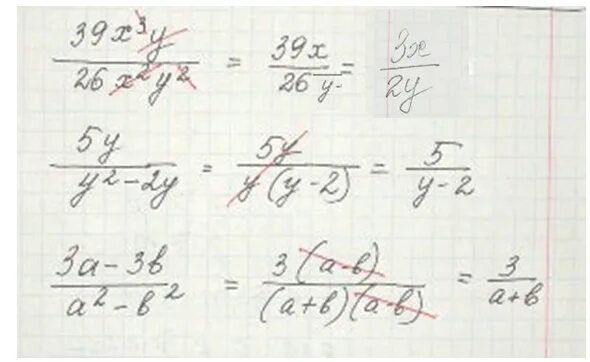 39x³y / 26x²y² = 39x / 26y = 3x / 2y
5y / y²-2y = 5y / y(y-2) = 5 / y-2
3a-3b / a²-b² = 3(a-b) / (a+b)(a-b) = 3 / a+b